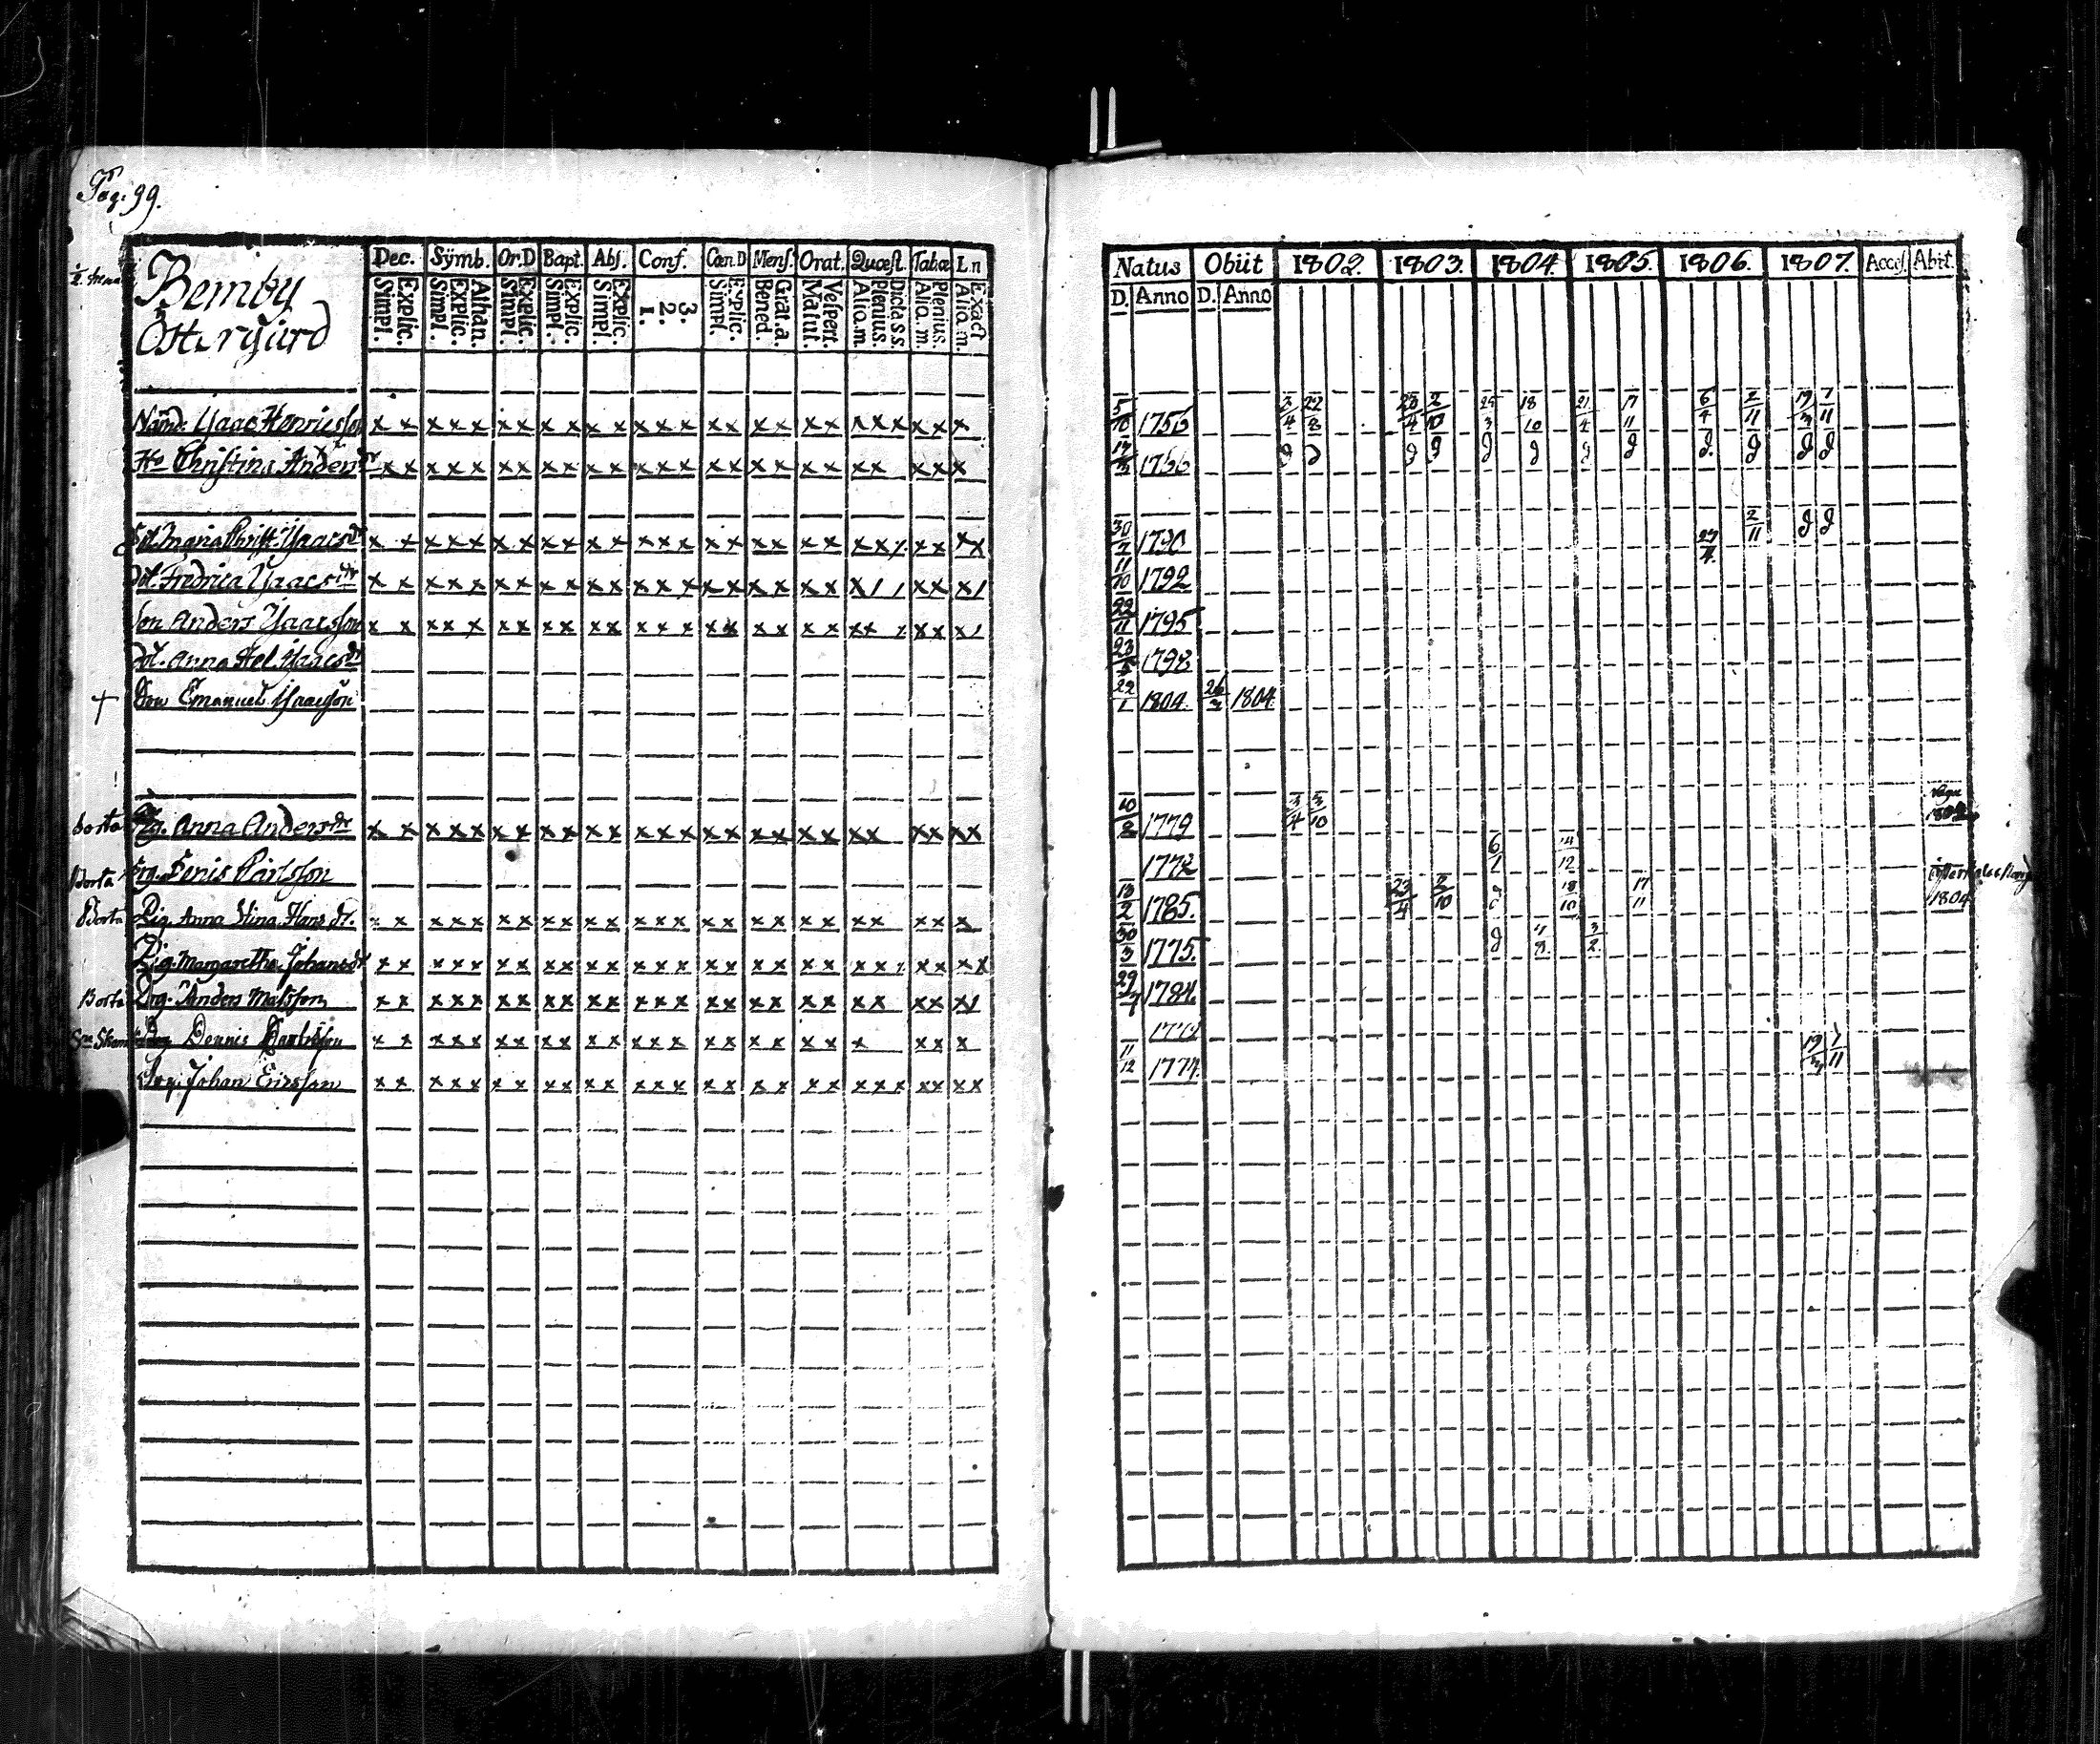 Pag. 99.
Bemböy
Östergård
Dec. Sÿmb. Or.D Bapt. Abſ. Conf. Cœn.D Menſ. Orat. Quæſt. Tabœ L.n
Explic. Simpl. Athan. Explic. Simpl. Explic. Simpl. Explic. Simpl. Explic. Simpl. 3. 2. 1. Explic. Simpl. Grat.a. Bened. Veſpert. Matut. Dicta s.s. Plenius. Alio.m. Plenius. Alio.m. Exact Alio.m.
Nämd. Ysaac Henricsson x x x x x x x x x x x x x x x x x x x x x x x x x x
Ho Christina Anders dr x x x x x x x x x x x x x x x x x x x x x x x x x
Dot. Maria Christ. Ysaacs dr x x x x x x x x x x x x x x x x x x x x x x x x x
Dot. Fredrica Ysaacs dr x x x x x x x x x x x x x x x x x x x x x / / x x x /
Son Anders Ysaacsson x x x x x x x x x x x x x x x x x x x x x x x x x
Dot. Anna Hel. Ysaacs dr
+ Son Emanuel Ysaacsson
borta Pig. Anna Anders dr x x x x x x x x x x x x x x x x x x x x x x x x x x
borta Drg. Denis Carlsson
Borta Pig. Anna Stina Hans dr. x x x x x x x x x x x x x x x x x x x x x x x x x
Pig. Margaretha Johans dr x x x x x x x x x x x x x x x x x x x x x x x x x x
Borta Drg. Anders Matsson x x x x x x x x x x x x x x x x x x x x x x x x x
Drg Dennis Carlsson x x x x x x x x x x x x x x x x x x x x x x x x
Drg. Johan Ericsson x x x x x x x x x x x x x x x x x x x x x x x x x x x
Natus Obiit 1802. 1803. 1804. 1805. 1806. 1807. Acceſ. Abit.
D. Anno D. Anno
5/10 1755 3/4 22/8 23/4 2/10 25/3 18/10 21/4 17/11 6/4 2/11 19/3 1/11
1756
30/7 1790 27/4 2/11
11/10 1792
22/11 1795
23/5 1798
22/1 1804. 26/3 1804.
10/2 1779 3/4 3/10
1772 6/1
13/2 1785. 23/4 2/10 18/10 17/11 1804
30/3 1775.
29/7 1784.
1772
11/12 1774. 19/3 1/11